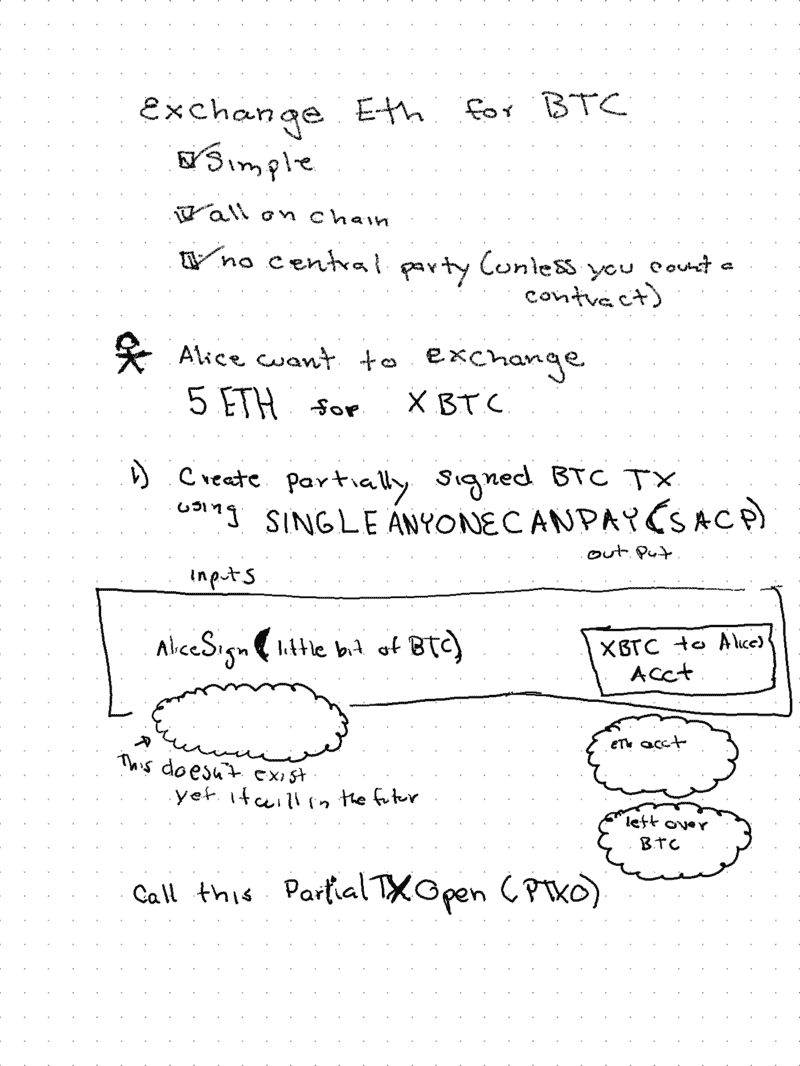 Exchange Eth for BTC
Simple
all on chain
no central party (unless you count a
contract)
Alice want to exchange
5 ETH for X BTC
1) Create partially signed BTC TX
using SINGLEANYONECANPAY (SACP)
inputs
out put
AliceSign (little bit of BTC)
XBTC to Alices
Acct
eth acct
This doesn't exist
yet it will in the futur
left over
BTC
Call this PartialTXOpen (PTXO)